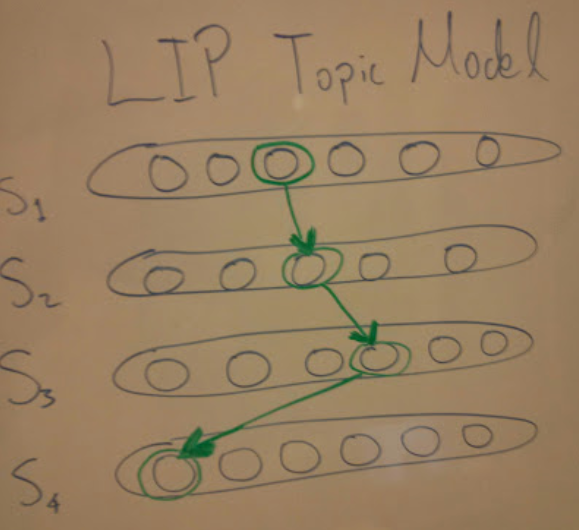 LIP Topic Model
S1
S2
S3
S4